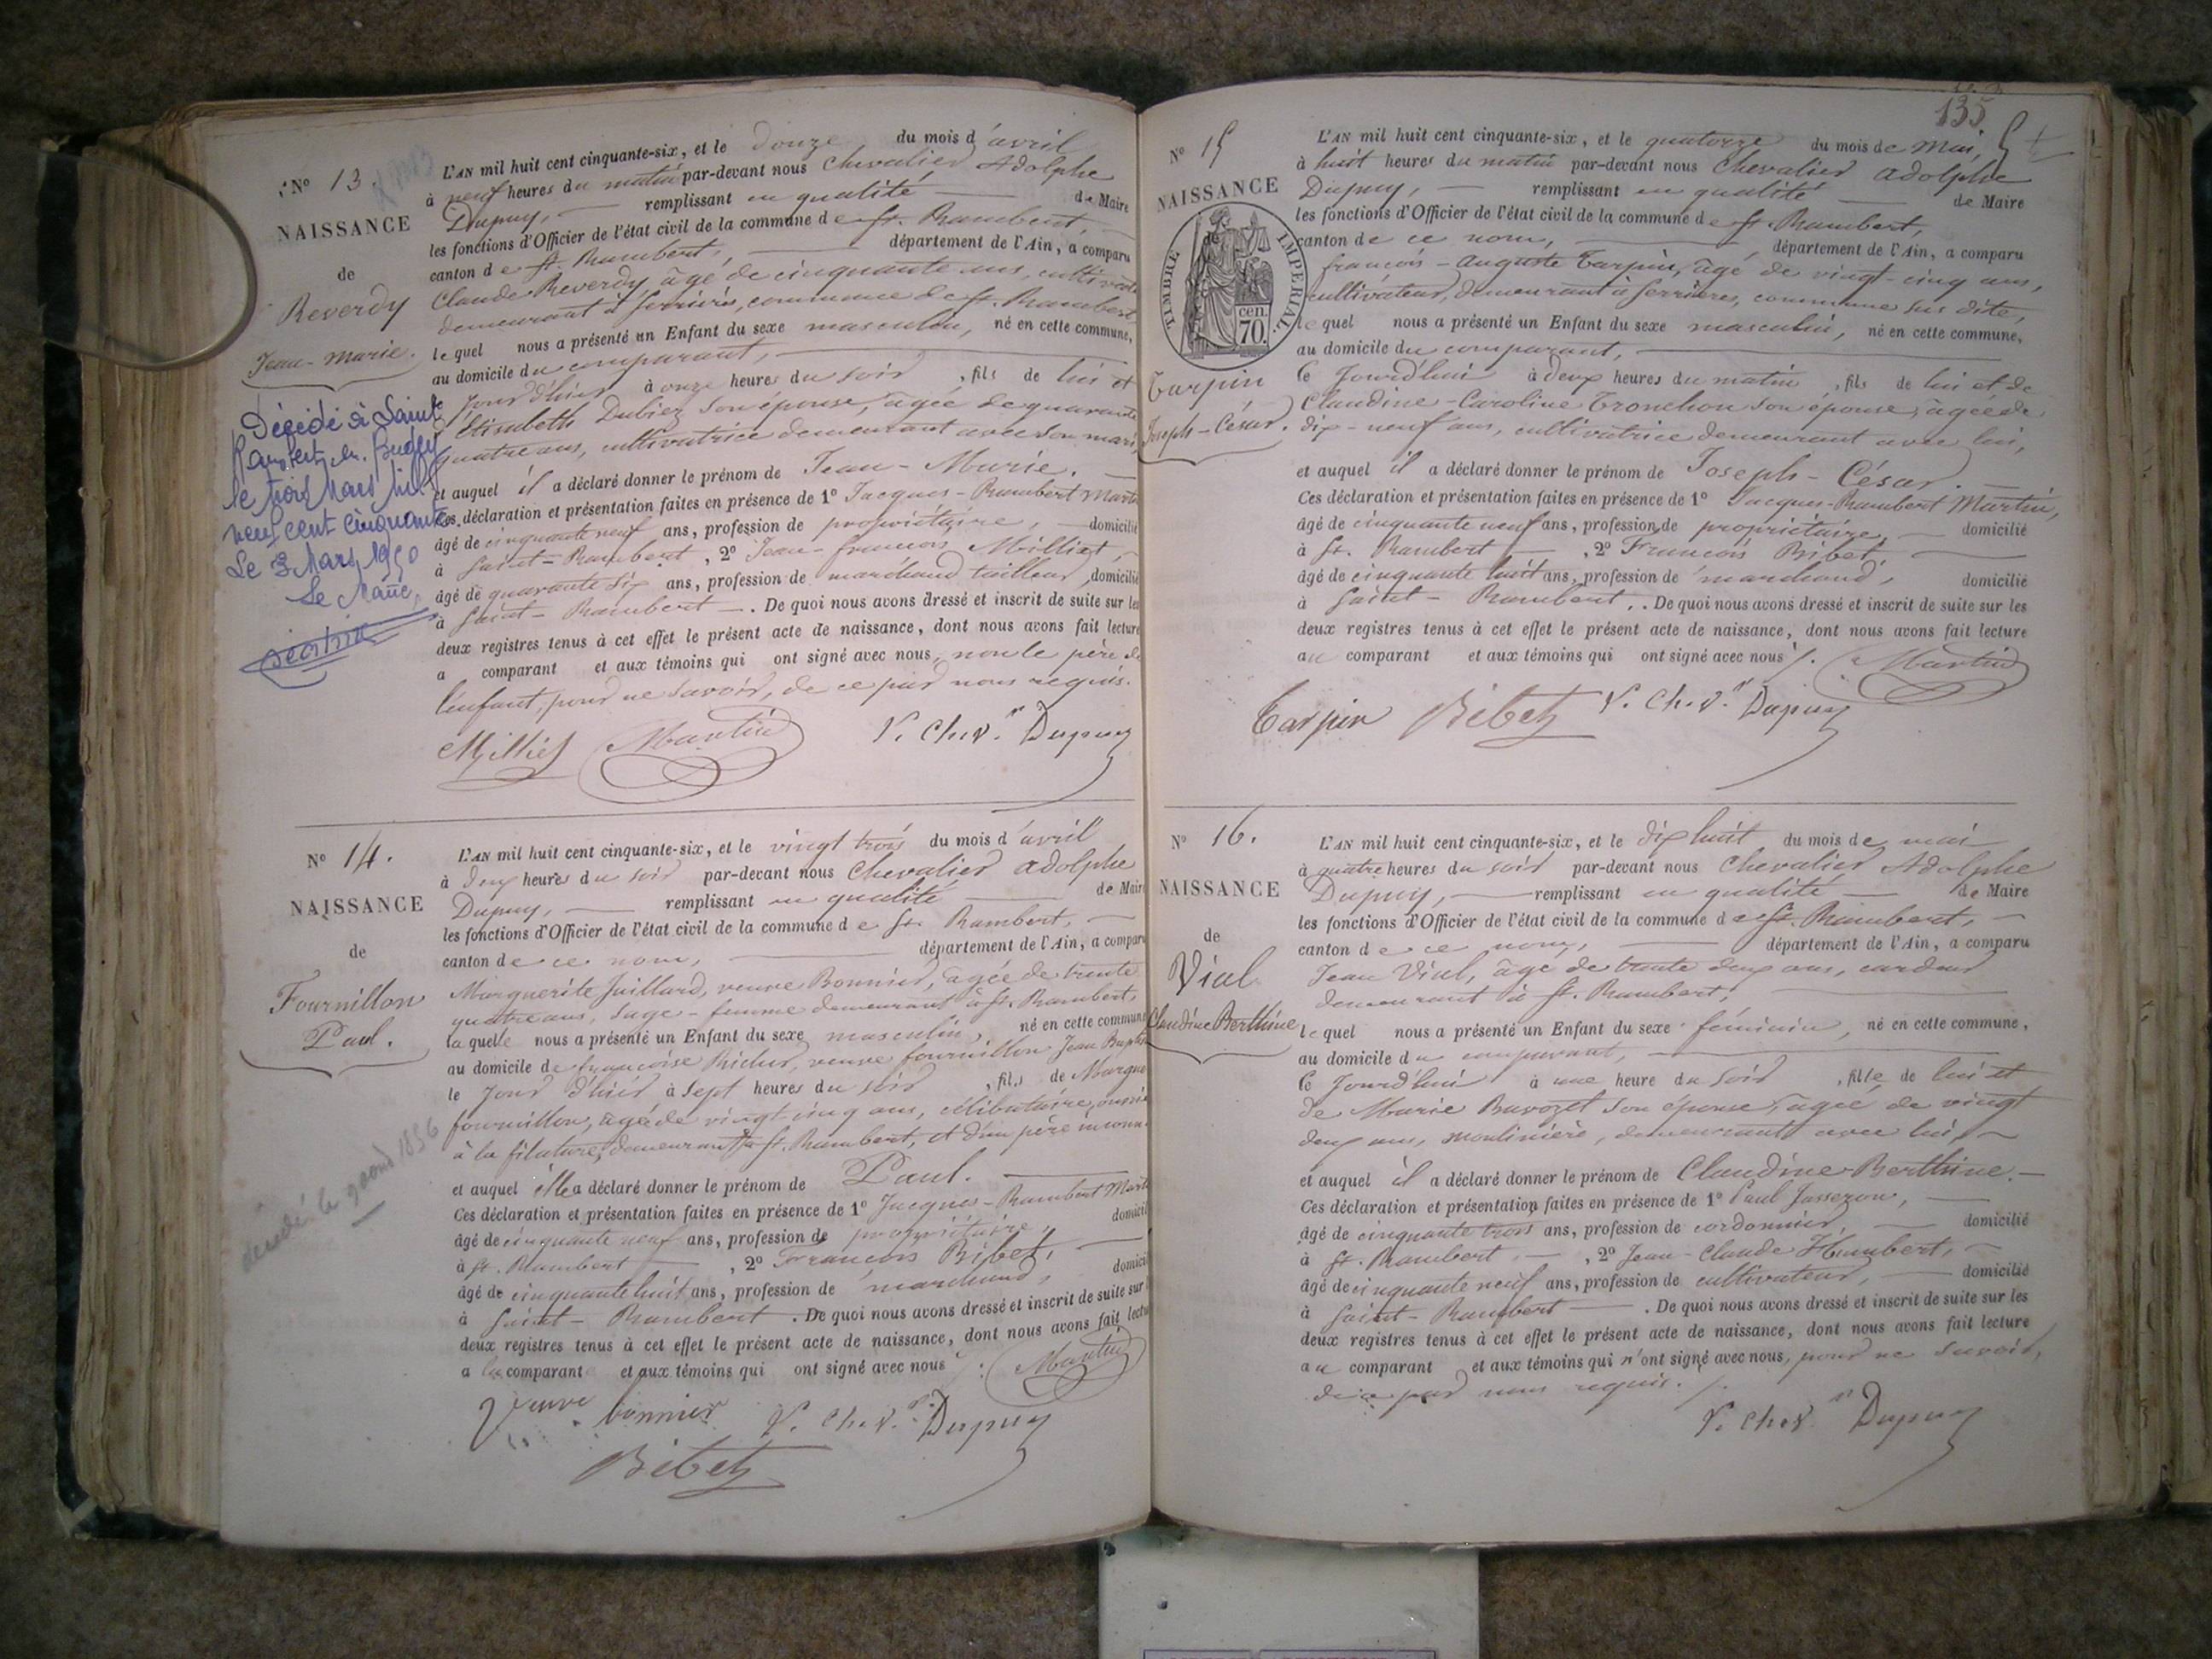 N° 13.
NAISSANCE
de
Reverdy
Jean-Marie.
Décédé à Saint
Rambert en Bugey
le trois Mars mil
neuf cent cinquante.
Le 3 Mars 1950
Le Maire,
L'AN mil huit cent cinquante-six, et le douze du mois d'avril
à neuf heures du matin par-devant nous Chevalier Adolphe
Dupuy, remplissant en qualité de Maire
les fonctions d'Officier de l'état civil de la commune de St. Rambert,
canton de St. Rambert, département de l'Ain, a comparu
Claude Reverdy, âgé de cinquante ans, cultivateur
demeurant à Serrières, commune de St. Rambert
lequel nous a présenté un Enfant du sexe masculin, né en cette commune,
au domicile du comparant,
le jour d'hier à onze heures du soir, fils de lui et
d'Élisabeth Dubiez son épouse, âgée de quarante
quatre ans, cultivatrice demeurant avec son mari,
et auquel il a déclaré donner le prénom de Jean-Marie.
Ces déclaration et présentation faites en présence de 1° Jacques-Rambert Martin
âgé de cinquante neuf ans, profession de propriétaire, domicilié
à Saint-Rambert, 2° Jean-François Milliet,
âgé de quarante six ans, profession de marchand tailleur, domicilié
à Saint-Rambert. De quoi nous avons dressé et inscrit de suite sur les
deux registres tenus à cet effet le présent acte de naissance, dont nous avons fait lecture
a comparant et aux témoins qui ont signé avec nous, non le père de
l'enfant, pour ne savoir, de ce par nous requis.
Milliet Martin V. Chev.er Dupuy
N° 14.
NAISSANCE
de
Fournillon
Paul.
décédé le 9 août 1856
L'AN mil huit cent cinquante-six, et le vingt trois du mois d'avril
à deux heures du soir par-devant nous Chevalier Adolphe
Dupuy, remplissant en qualité de Maire
les fonctions d'Officier de l'état civil de la commune de St. Rambert,
canton de ce nom, département de l'Ain, a comparu
Marguerite Juillard, veuve Bonnier, âgée de trente
quatre ans, sage-femme demeurant à St. Rambert,
laquelle nous a présenté un Enfant du sexe masculin, né en cette commune
au domicile de françoise veuve fournillon Jean Baptiste
le jour d'hier à sept heures du soir, fils de Margue
fournillon, âgée de vingt cinq ans, célibataire, ouvrière
à la filature, demeurant à St. Rambert, et d'un père inconnu
et auquel elle a déclaré donner le prénom de Paul.
Ces déclaration et présentation faites en présence de 1° Jacques-Rambert Martin
âgé de cinquante neuf ans, profession de propriétaire, domicil
à St. Rambert, 2° François Bibet,
âgé de cinquante huit ans, profession de marchand, domici
à Saint-Rambert. De quoi nous avons dressé et inscrit de suite sur
deux registres tenus à cet effet le présent acte de naissance, dont nous avons fait lectu
a la comparante et aux témoins qui ont signé avec nous. Martin
Veuve bonnier V. Chev.er Dupuy
Bibet
135
N° 15
NAISSANCE
TIMBRE IMPERIAL.
70. cen
Tarpin
Joseph-César.
L'AN mil huit cent cinquante-six, et le quatorze du mois de Mai,
à huit heures du matin par-devant nous Chevalier Adolphe
Dupuy, remplissant en qualité de Maire
les fonctions d'Officier de l'état civil de la commune de St. Rambert,
canton de ce nom, département de l'Ain, a comparu
françois-Auguste Tarpin, âgé de vingt-cinq ans,
cultivateur, demeurant à Serrières, commune sus dite,
lequel nous a présenté un Enfant du sexe masculin, né en cette commune,
au domicile du comparant,
le Jourd'hui à deux heures du matin, fils de lui et de
Claudine-Caroline Tronchon son épouse, âgée de
dix-neuf ans, cultivatrice demeurant avec lui,
et auquel il a déclaré donner le prénom de Joseph-César.
Ces déclaration et présentation faites en présence de 1° Jacques-Rambert Martin,
âgé de cinquante neuf ans, profession de propriétaire, domicilié
à St. Rambert, 2° François Bibet,
âgé de cinquante huit ans, profession de marchand, domicilié
à Saint-Rambert. De quoi nous avons dressé et inscrit de suite sur les
deux registres tenus à cet effet le présent acte de naissance, dont nous avons fait lecture
au comparant et aux témoins qui ont signé avec nous. Martin
Tarpin Bibet V. Chev.er Dupuy
N° 16.
NAISSANCE
de
Vial
Claudine Berthine
L'AN mil huit cent cinquante-six, et le dix huit du mois de mai
à quatre heures du soir par-devant nous Chevalier Adolphe
Dupuy, remplissant en qualité de Maire
les fonctions d'Officier de l'état civil de la commune de St. Rambert,
canton de ce nom, département de l'Ain, a comparu
Jean Vial, âgé de trente deux ans, cardeur
demeurant à St. Rambert,
lequel nous a présenté un Enfant du sexe féminin, né en cette commune,
au domicile du comparant,
le Jourd'hui à une heure du soir, fille de lui et
de Marie Bavozet son épouse, âgée de vingt
deux ans, moulinière, demeurant avec lui,
et auquel il a déclaré donner le prénom de Claudine Berthine.
Ces déclaration et présentation faites en présence de 1° Paul Jasseron,
âgé de cinquante trois ans, profession de cordonnier, domicilié
à St. Rambert, 2° Jean-Claude Humbert,
âgé de cinquante neuf ans, profession de cultivateur, domicilié
à Saint-Rambert. De quoi nous avons dressé et inscrit de suite sur les
deux registres tenus à cet effet le présent acte de naissance, dont nous avons fait lecture
au comparant et aux témoins qui n'ont signé avec nous, pour ne savoir,
de ce par nous requis.
V. Chev.er Dupuy